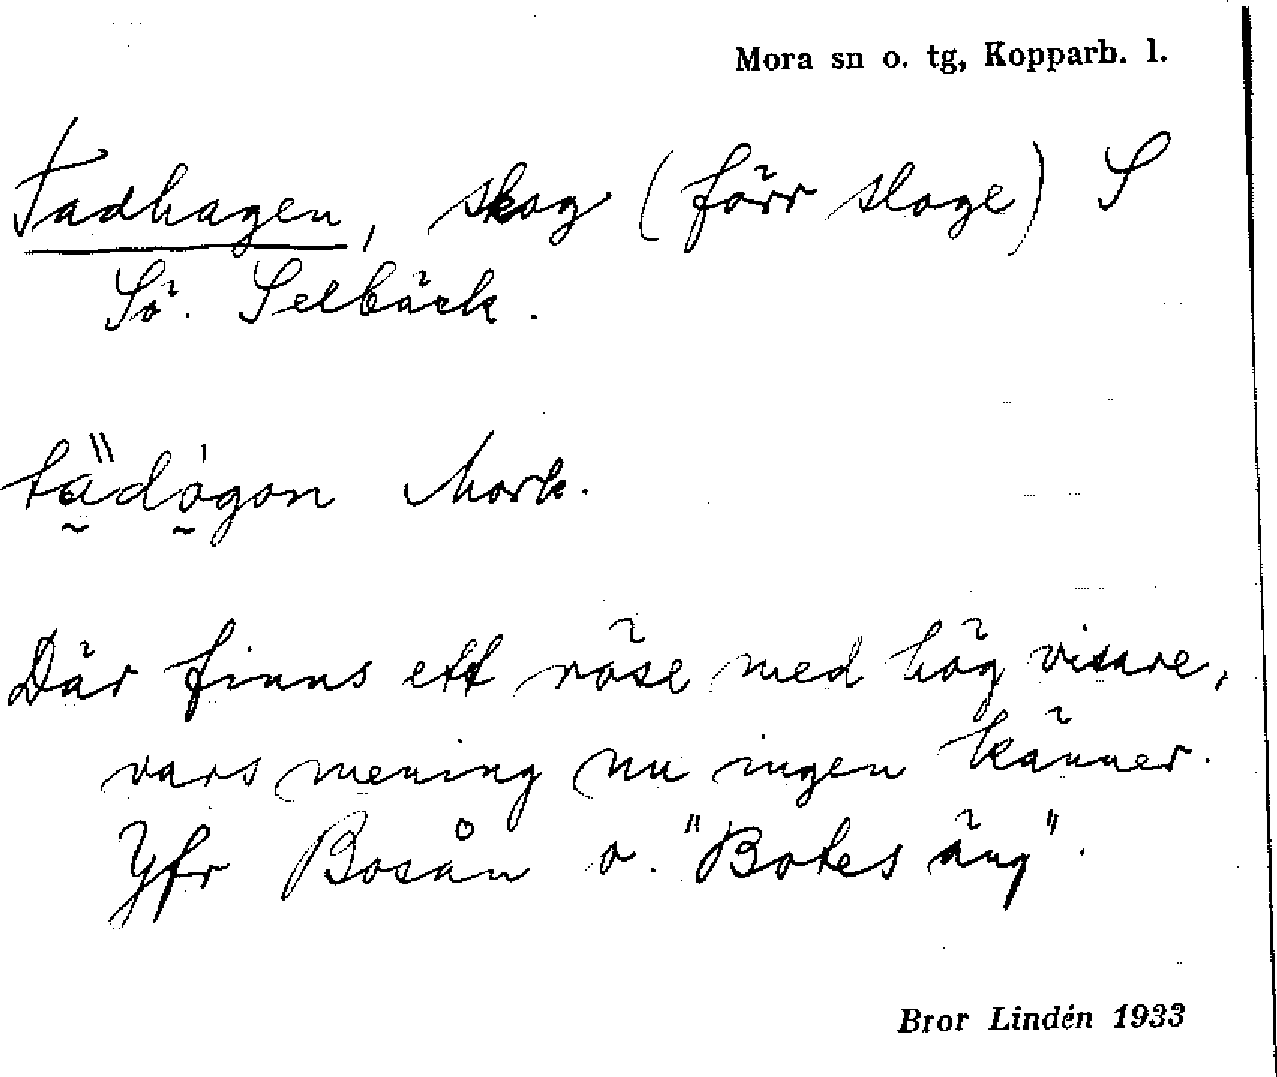 Mora sn o. tg, Kopparb. l.
Tadhagen, skog (förr sloge) S
Sö. Selbäck.
Mork.
Där finns ett röse med hög visare,
vars mening nu ingen känner.
Yfr Bosån o. "Botes äng".
Bror Lindén 1933